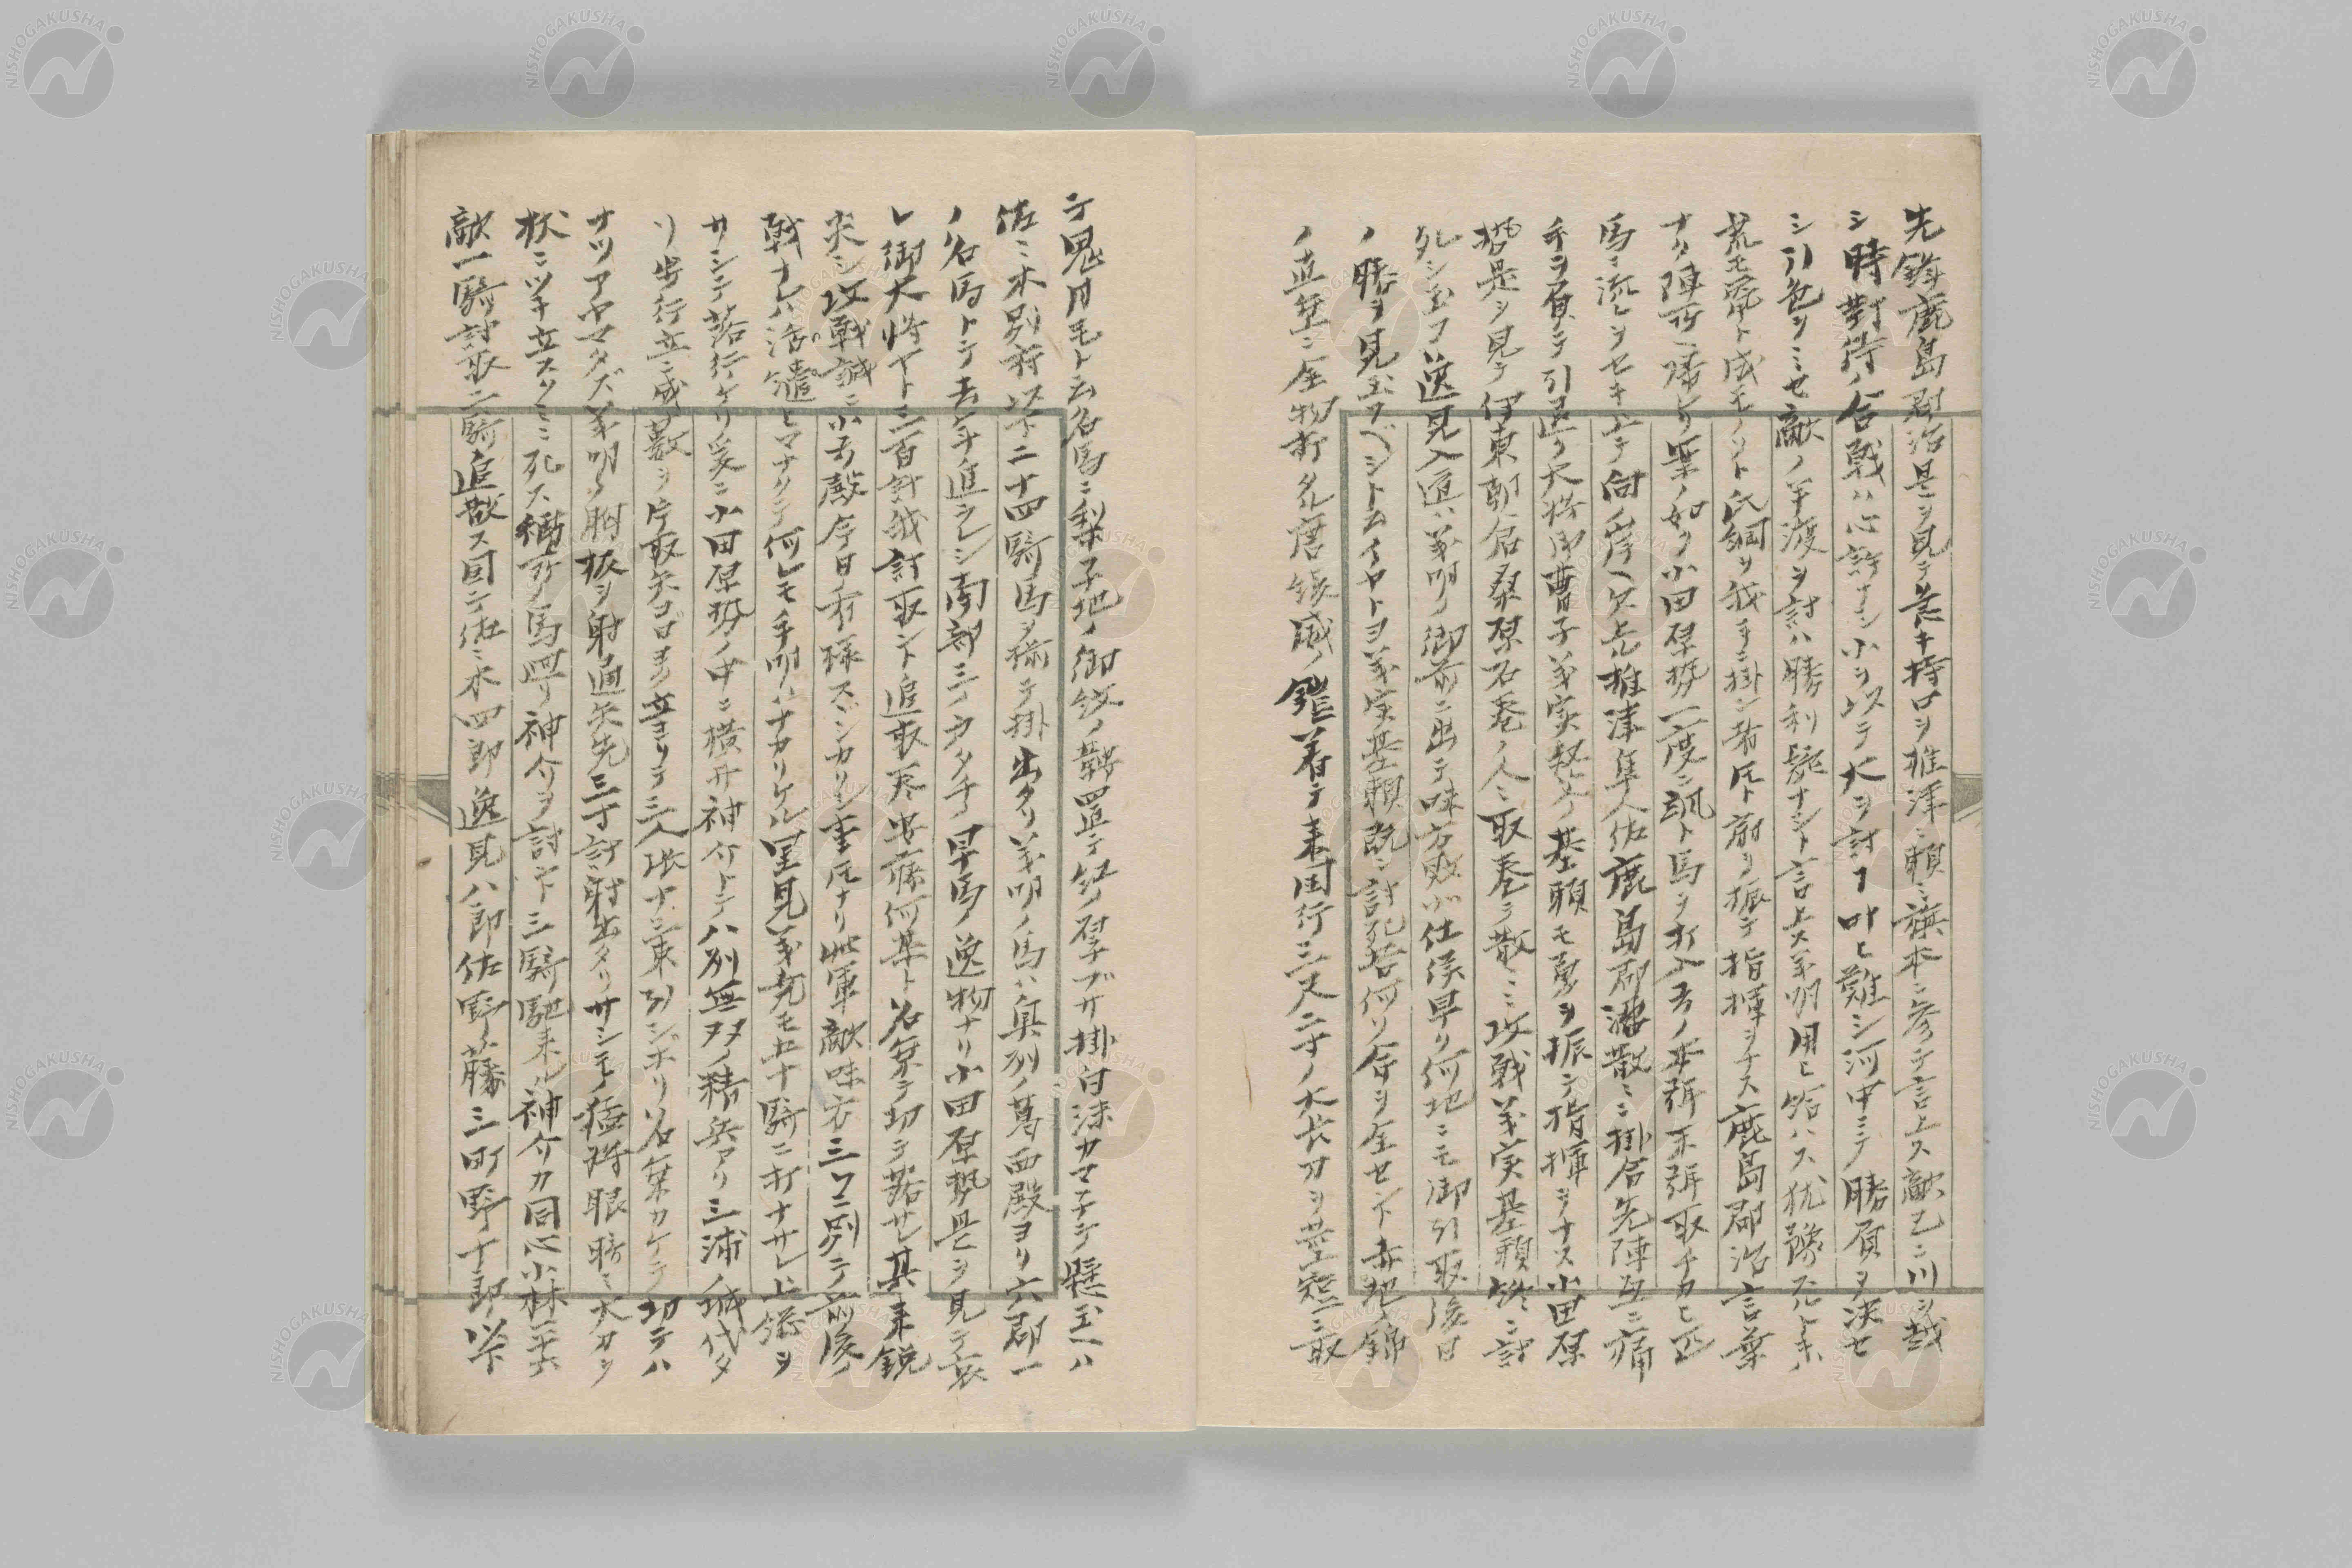 先鋒鹿島郡治是ヲ見テ荒キ持口ヲ椎津ニ頼ミ旗本ニ参テ言上ス敵已ニ川ヲ越
シ時対待ノ合戦ハ心許ナシ小ヲ以テ大ヲ討コ叶ヒ難シ河中ニテ勝負ヲ決セ
シ引色ヲミセ敵ノ半渡ヲ討ハ勝利疑ナシト言上ス義明用ヒ給ハス猶豫
ナリ陣所ニ帰ケリ案ノ如ク小田原勢一度ニ颯ト馬ヲ打入弓ノ本弭末弭取チカヒ
馬ニ流レヲセキ上テ向ノ岸ヘ欠上椎津隼人佐鹿島郡治散ミニ掛合先陣互ニ痛
手ヲ負テ引退ク大将御曹子義実基頼モ勇ヲ振テ指揮ヲナス小田原
勢是ヲ見テ伊東朝倉桑原石巻ノ人ミ取巻テ散ミニ攻戦義実基頼終ニ討
死シ玉フ逸見入道ハ義明ノ御前ニ出テ味方敗北仕候早ク何地ニモ御引取後日
ノ勝ヲ見玉フベシト云イヤトヨ義実基頼既ニ討死吾何ソ命ヲ全セント赤地ノ錦
ノ直垂ニ金物打タル唐綾威ノ鎧着テ来国行三尺二寸ノ大長刀ヲ茎短ニ取
テ鬼月毛ト云名馬ニ梨子地ノ御紋ノ鞍置テ紅ノ厚ブサ掛白沫カマチテ懸玉ハ
佐ミ木別府以下二十四騎馬ヲ揃テ掛出タリ義明ノ馬ハ真列ノ葛西殿ヨリ六郡一
ノ名馬トテ去年進ラレシ南部三戸タチノ早馬ノ逸物ナリ小田原勢是ヲ見テ哀
レ御大将ヤト三百計我討取ント追取巻安藤何某ト名乗テ切テ落サレ其来鋭
来シ攻戦誠ニ小弓殿今日有様スヾシカリシ事共ナリ此軍敵味方三ワニ別ケテ前後ノ
戦ナレハ活ヒマナクテ何レモ手明ハナカリケル里見義堯モ五十騎ニ打ナサレ上総ヲ
サシテ落行ケリ爰ニ小田原勢ノ中ニ横井神介トテ八州無双ノ精兵アリ三浦ノ城代タ
リ歩行立ニ成数ヲ片取矢ゴロ近ク立ヨリテ三人張ナシ東引シボリ名乗カケテ切テハ
サツアヤマタズ義明ノ胸板ヲ射通矢先三寸計射出タリサシモノ猛将眼暗ミ太刀ヲ
杖ニツキ立スクミニ死ス神介ヲ討ント三騎馳来ル神介カ同心小林平六
敵一騎討取二騎追散ス因テ佐ミ木四郎逸見八郎佐野藤三町野十郎以下